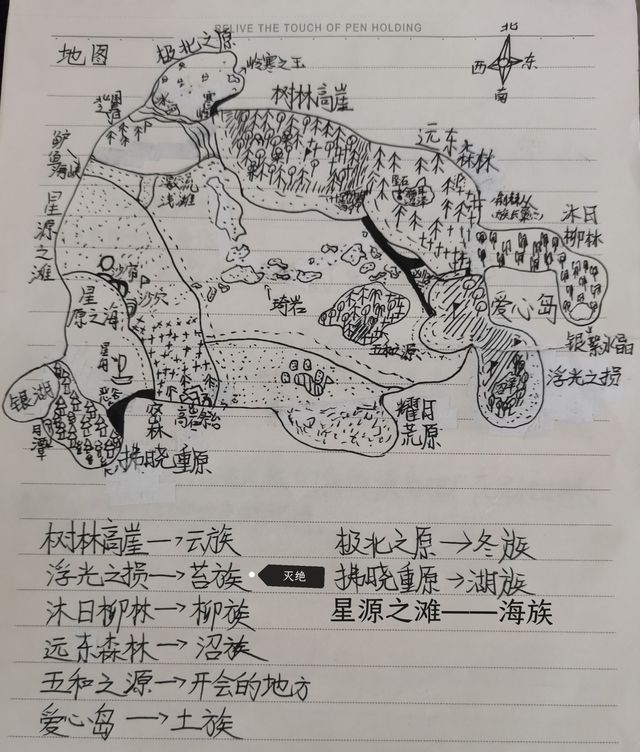 RELIVE THE TOUCH OF PEN HOLDING
地图
极北之原
北
西 东
南
岭寒之玉
树林高崖
远东森林
沐日柳林
星源之滩
沙宿
沙尔
星原之海
爱心岛
银絮冰晶
琦岩
五和之源
浮光之损
银湖
月潭
密林
耀日荒原
拂晓重原
树林高崖→云族
极北之原→冬族
浮光之损→苔族
灭绝
拂晓重原→湖族
沐日柳林→柳族
星源之滩——海族
远东森林→沼族
五和之源→开会的地方
爱心岛→土族